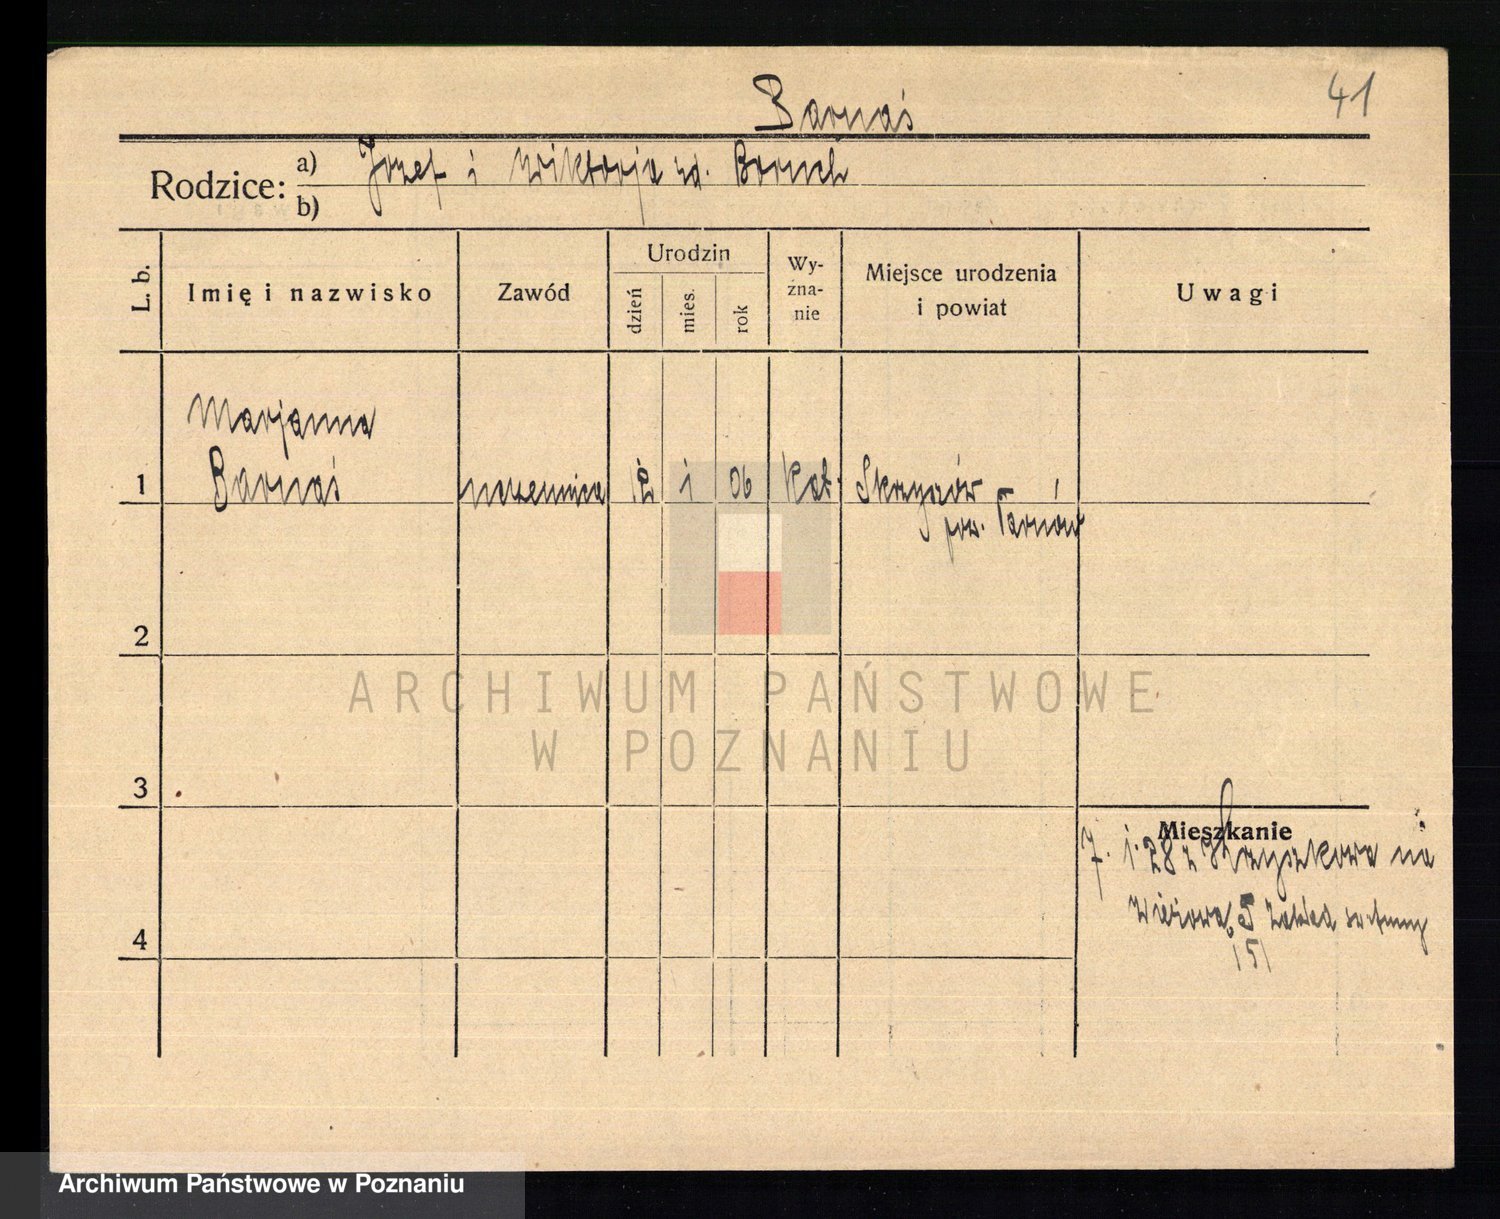 41
Barnaś
Rodzice: a) Józef i Wiktorja zd. Boruch
b)
L. b.
Imię i nazwisko
Zawód
Urodzin
dzień
mies.
rok
Wy-
zna-
nie
Miejsce urodzenia
i powiat
Uwagi
Marjanna
1 Barnaś uczennica 12 1 06 kat. Skrzyszów
pow. Tarnów
2
ARCHIWUM PAŃSTWOWE
W POZNANIU
3
Mieszkanie
7. 1. 28 z na
5 Zakład
151
4
Archiwum Państwowe w Poznaniu